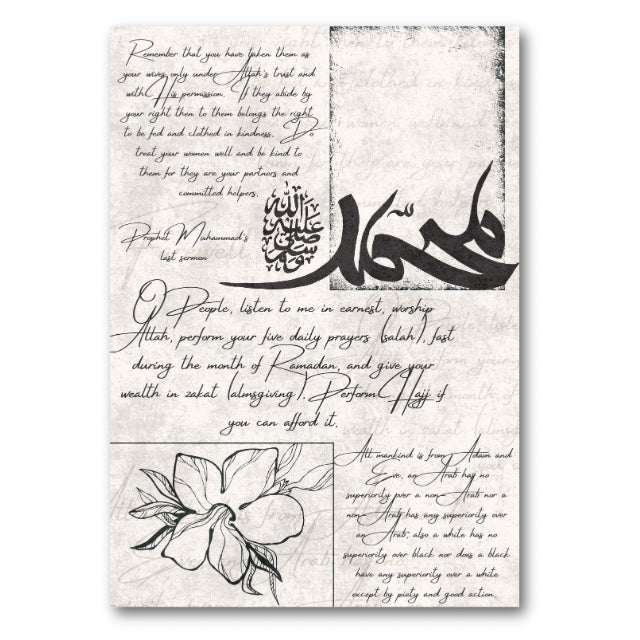 Remember that you have taken them as
your wives only under Allah's trust and
with His permission. If they abide by
your right then to them belongs the right
to be fed and clothed in kindness. Do
treat your women well and be kind to
them for they are your partners and
committed helpers.
Prophet Muhammad's
last sermon
محمد
صلى الله عليه وسلم
O People, listen to me in earnest, worship
Allah, perform your five daily prayers (salah), fast
during the month of Ramadan, and give your
wealth in zakat (almsgiving). Perform Hajj if
you can afford it.
All mankind is from Adam and
Eve, an Arab has no
superiority over a non-Arab nor a
non-Arab has any superiority over
an Arab; also a white has no
superiority over black nor does a black
have any superiority over a white
except by piety and good action.